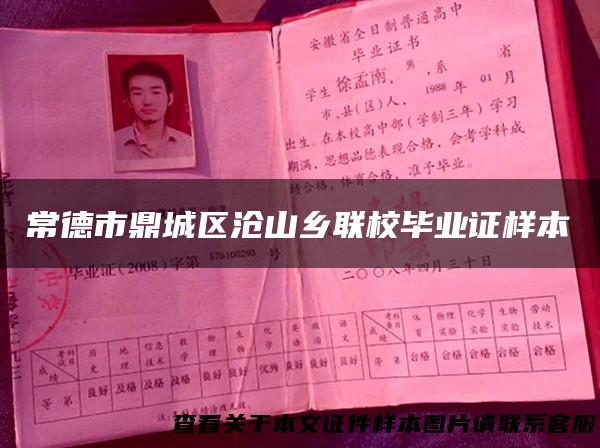 安徽省全日制普通高中
毕业证书
学生徐孟南,男,系 省
市、县(区)人,1988年01月
出生。在本校高中部(学制三年)学习
期满,思想品德表现合格,会考学科成
绩合格,体育合格,准予毕业。
常德市鼎城区沧山乡联校毕业证样本
毕业证(2008)字第576100293号
二〇〇八年四月三十日
考试科目 历史 地理 信息技术 数学 物理 生物 化学 英语 政治 语文
成绩
等第 良好 及格 及格 及格 良好 良好 优秀 良好 良好 良好
考查科目 体育 物理实验 化学实验 生物实验 劳动技术
成绩
等第 合格 合格 合格 合格 合格
注:本成绩涂改无效。
查看关于本文证件样本图片请联系客服